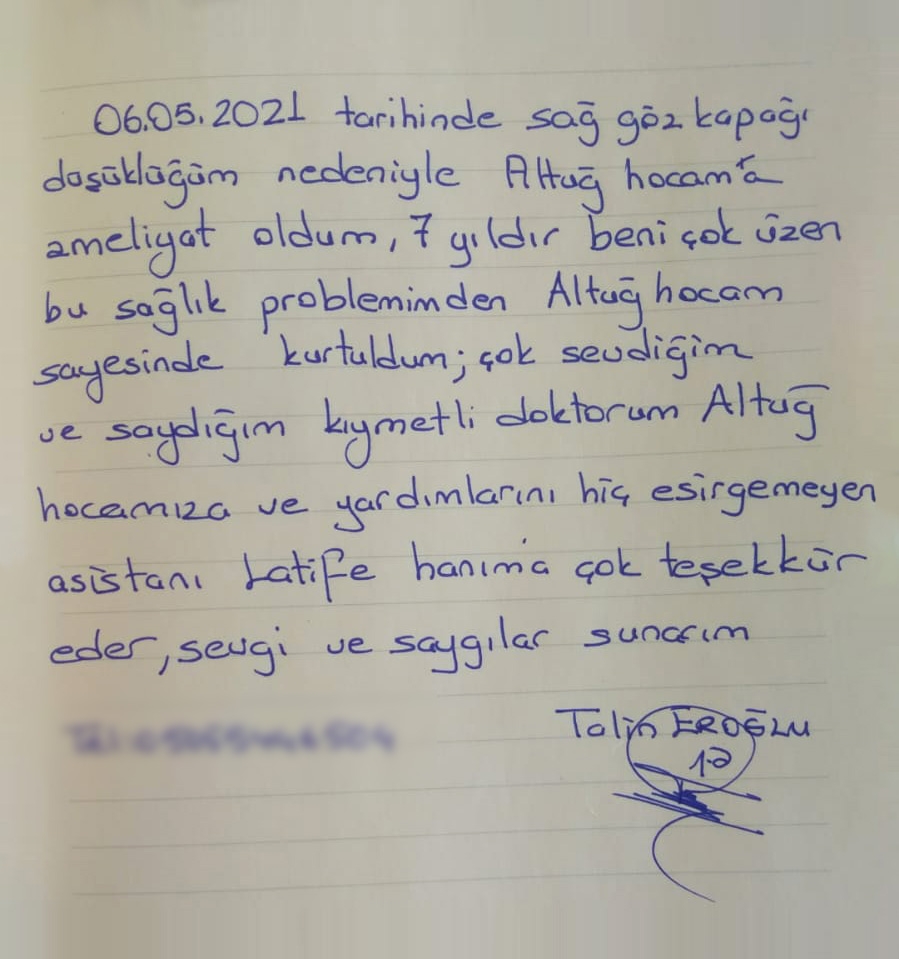 06.05.2021 tarihinde sağ göz kapağı
düşüklüğüm nedeniyle Altuğ hocam'a
ameliyat oldum, 7 yıldır beni çok üzen
bu sağlık problemimden Altuğ hocam
sayesinde kurtuldum; çok sevdiğim
ve saydığım kıymetli doktorum Altuğ
hocamıza ve yardımlarını hiç esirgemeyen
asistanı Latife hanım'a çok teşekkür
eder, sevgi ve saygılar sunarım
Talin EROĞLU